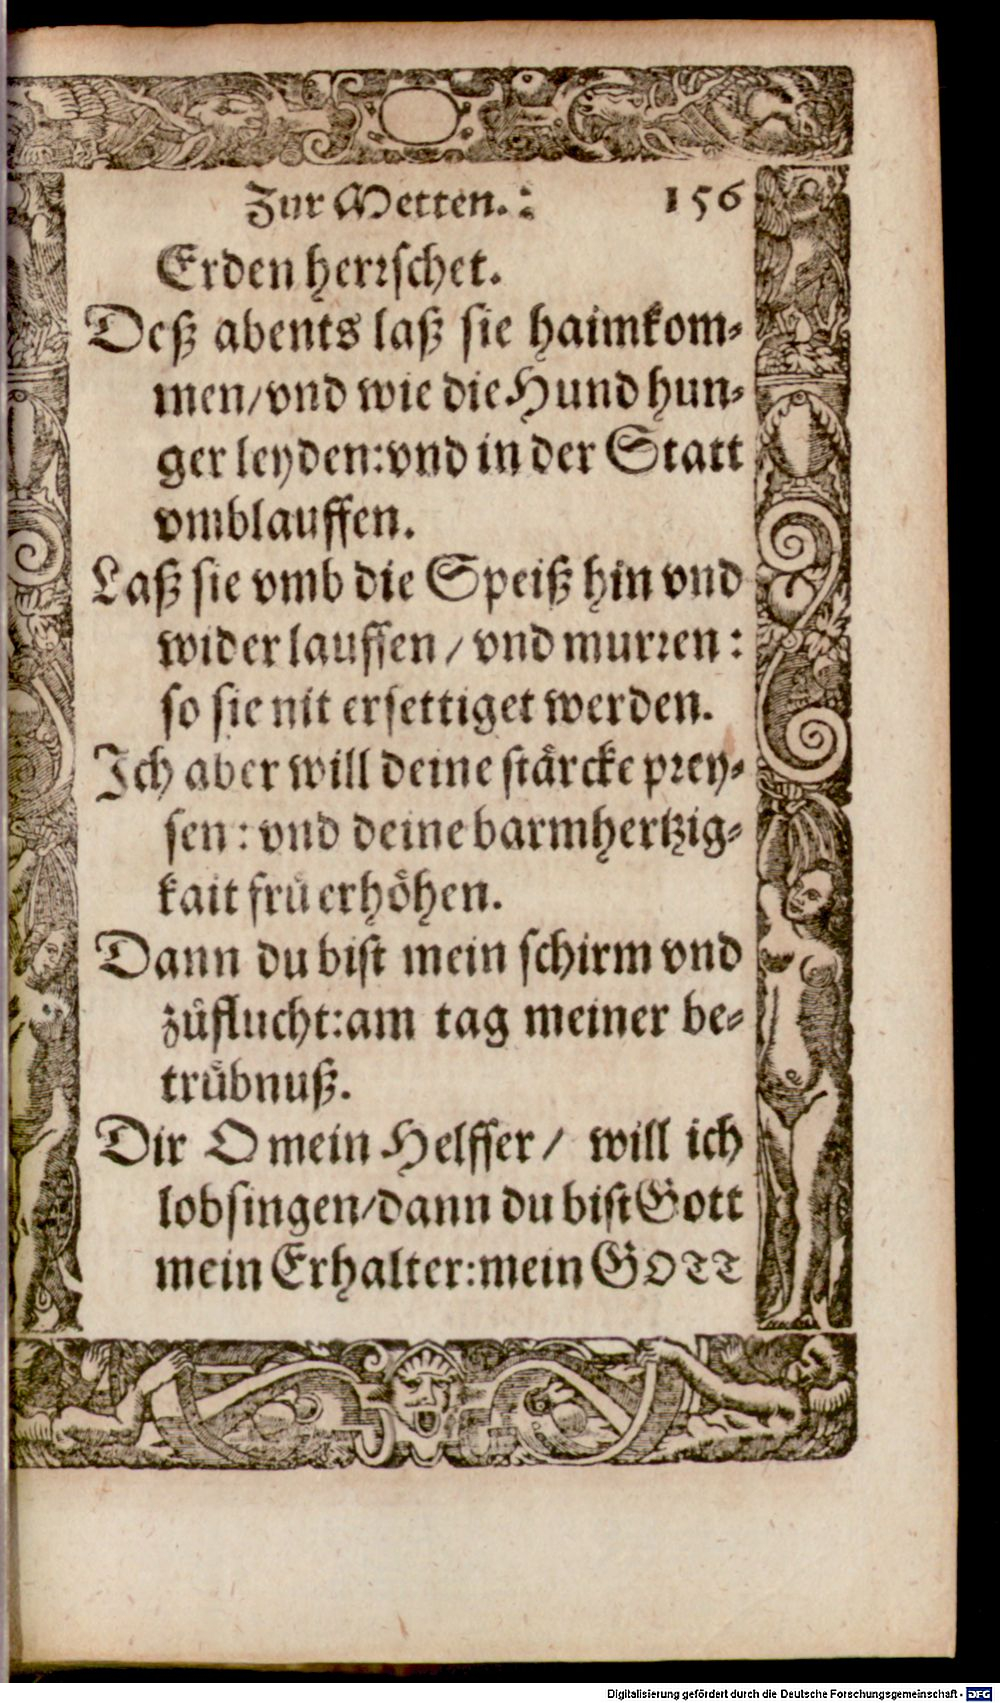 Zur Metten. : 156
Erden herrschet.
Deß abents laß sie haimkom-
men/vnd wie die Hund hun-
ger leyden:vnd in der Statt
vmblauffen.
Laß sie vmb die Speiß hin vnd
wider lauffen / vnd murren :
so sie nit ersettiget werden.
Ich aber will deine stärcke prey-
sen : vnd deine barmhertzig-
kait frü erhöhen.
Dann du bist mein schirm vnd
zůflucht:am tag meiner be-
trübnuß.
Dir O mein Helffer / will ich
lobsingen/dann du bist Gott
mein Erhalter:mein GOTT
Digitalisierung gefördert durch die Deutsche Forschungsgemeinschaft - DFG